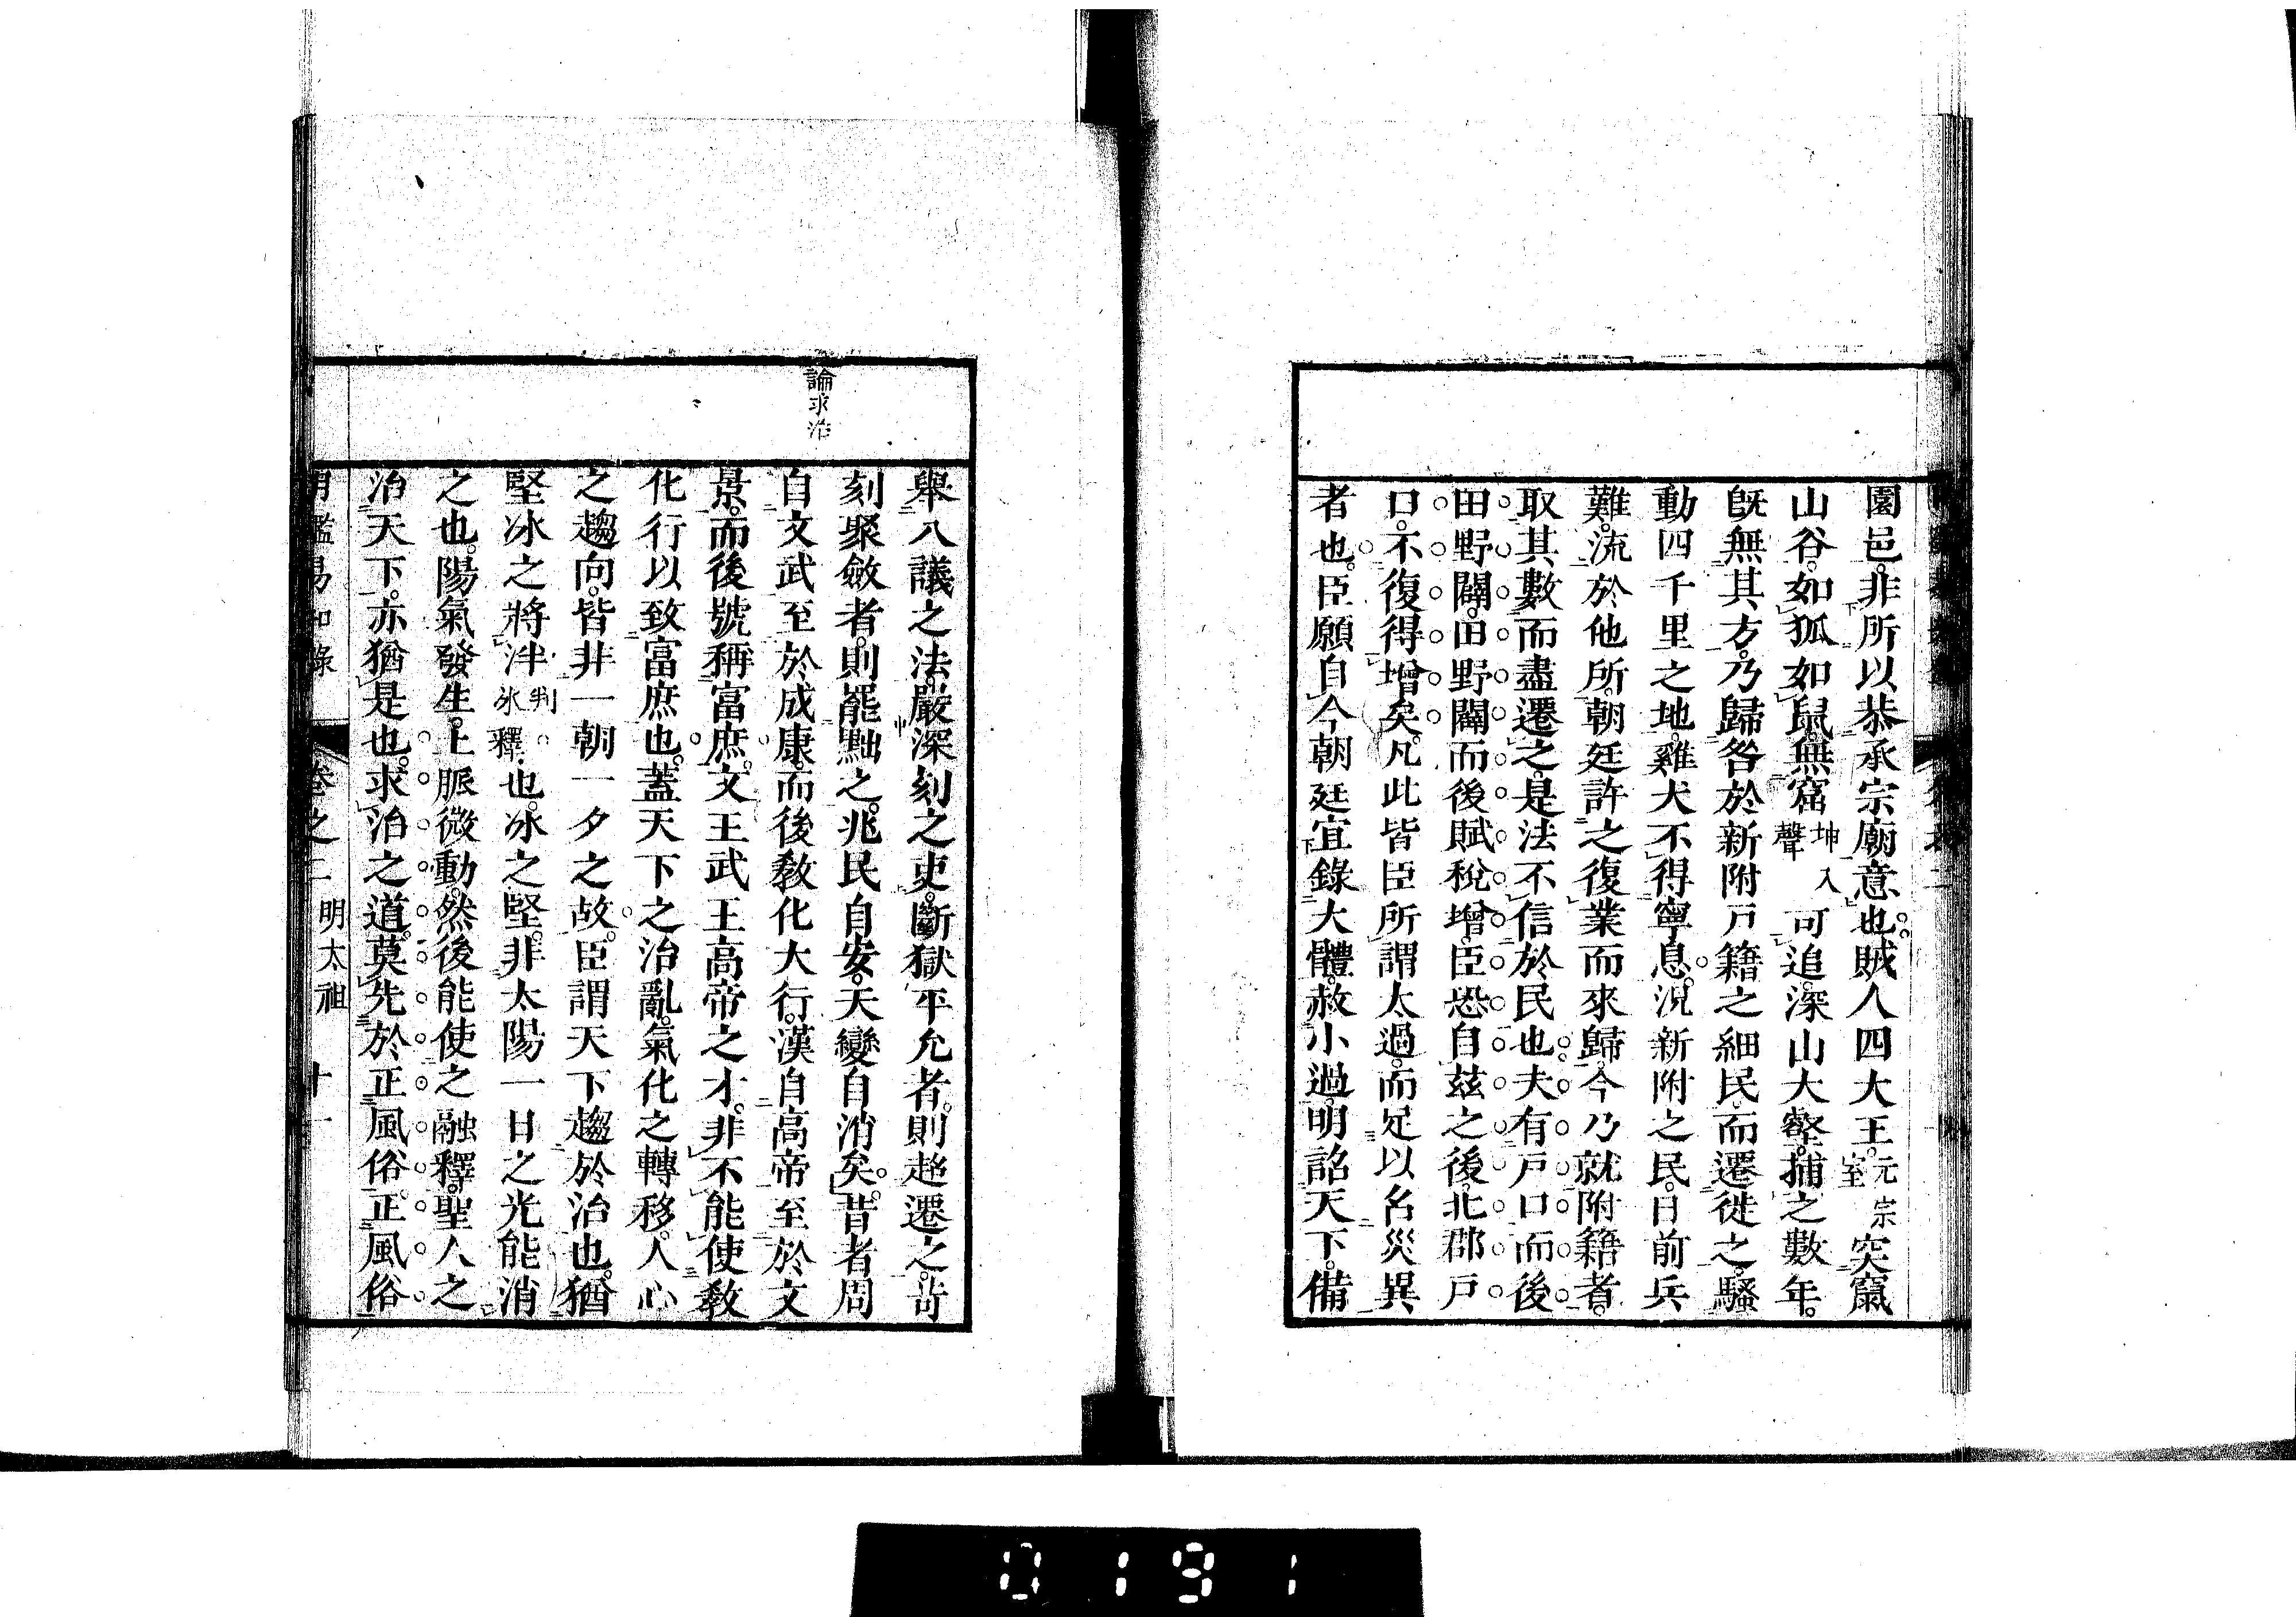 園邑。非所以恭承宗廟意也。賊人四大王。元宗室突竄
山谷。如狐如鼠。無窟坤入聲可追。深山大壑。捕之數年。
旣無其方。乃歸咎於新附戸籍之細民。而遷徙之。騷
動四千里之地。雞犬不得寧息。況新附之民。日前兵
難。流於他所。朝廷許之復業而來歸。今乃就附籍者。
取其數而盡遷之。是法不信於民也。夫有戸口而後
田野闢。田野闢而後賦稅增。臣恐自玆之後。北郡戸
口。不復得增矣。凡此皆臣所謂太過。而足以名災異
者也。臣願自今朝廷宜錄大體。赦小過。明詔天下。備
擧八議之法。嚴深刻之吏。斷獄平允者。則超遷之。苛
刻聚斂者。則罷黜之。兆民自安。天變自消矣。昔者周
論求治
自文武至於成康。而後敎化大行。漢自高帝至於文
景。而後號稱富庶。文王武王高帝之才。非不能使敎
化行以致富庶也。蓋天下之治亂。氣化之轉移。人心
之趨向。皆非一朝一夕之故。臣謂天下趨於治也。猶
堅冰之將泮判氷釋也。冰之堅。非太陽一日之光能消
之也。陽氣發生。土脈微動。然後能使之融釋。聖人之
治天下。亦猶是也。求治之道。莫先於正風俗。正風俗
明鑑易知錄 卷之二 明太祖 十一
0191